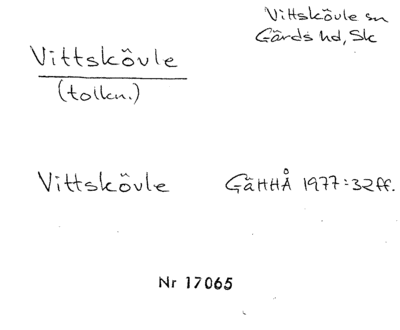 Vittskövle sn
Gärds hd, Sk
Vittskövle
(tolkn.)
Vittskövle GäHHÅ 1977:32ff.
Nr 17065